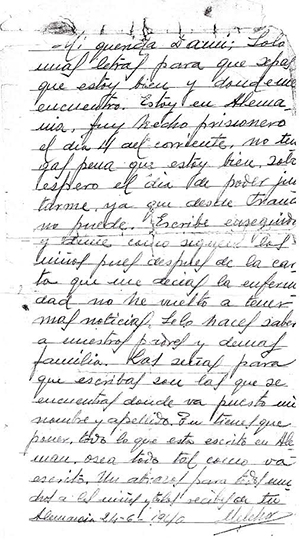 -Mi querida Dani; Solo
unas letras para que sepas
que estoy bien y donde me
encuentro. Estoy en Alema-
nia, fuy hecho prisionero
el dia 14 del corriente, no ten
gas pena que estoy bien, solo
espero el dia de poder jun
tarme, ya que desde Francia
no puede. Escribe enseguida
y dime como siguen los
niños pues despues de la car
ta que me decias la enferme
dad no he vuelto a tener
mas noticias. Lo haces saber
a nuestros padres y demas
familia. Las señas para
que escribas son las que se
encuentras donde va puesto mi
nombre y apellido. Tu tienes que
poner, todo lo que esta escrito en Ale
man, osea todo tal como va
escrito. Un abrazo para todos mu
chos a los niños y tu recibes de tu
Alemania 24-6-1940